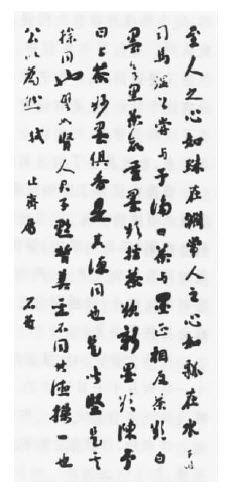 至人之心如珠在淵常人之心如瓢在水
司馬溫公嘗與予論曰茶與墨正相反茶欲白
墨欲黑茶欲重墨欲輕茶欲新墨欲陳予
曰上茶妙墨俱香是其德同也皆堅是其
操同也賢人君子黔皙美惡不同其德操一也
公以為然 軾 止齋屬 石菴